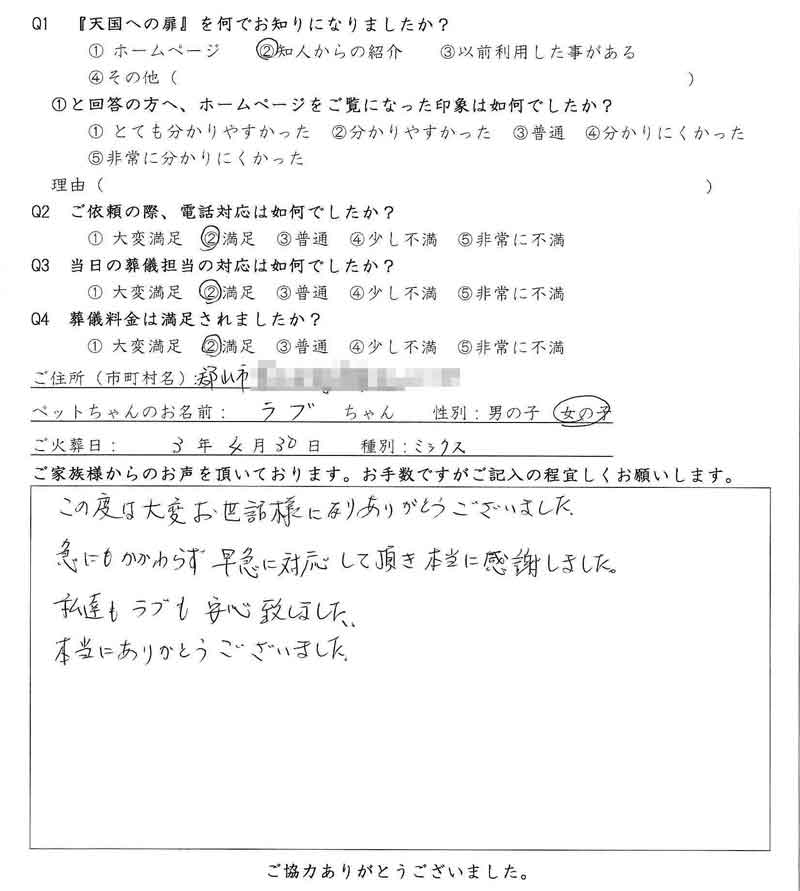 Q1 『天国への扉』を何でお知りになりましたか?
① ホームページ ②知人からの紹介 ③以前利用した事がある
④その他( )
①と回答の方へ、ホームページをご覧になった印象は如何でしたか?
① とても分かりやすかった ②分かりやすかった ③普通 ④分かりにくかった
⑤非常に分かりにくかった
理由( )
Q2 ご依頼の際、電話対応は如何でしたか?
① 大変満足 ②満足 ③普通 ④少し不満 ⑤非常に不満
Q3 当日の葬儀担当の対応は如何でしたか?
① 大変満足 ②満足 ③普通 ④少し不満 ⑤非常に不満
Q4 葬儀料金は満足されましたか?
① 大変満足 ②満足 ③普通 ④少し不満 ⑤非常に不満
ご住所(市町村名):郡山市
ペットちゃんのお名前: ラブ ちゃん 性別:男の子 女の子
ご火葬日: 3 年 4 月 30 日 種別:ミックス
ご家族様からのお声を頂いております。お手数ですがご記入の程宜しくお願いします。
この度は大変お世話様になりありがとうございました。
急にもかかわらず早急に対応して頂き本当に感謝しました。
私達もラブも安心致しました。
本当にありがとうございました。
ご協力ありがとうございました。